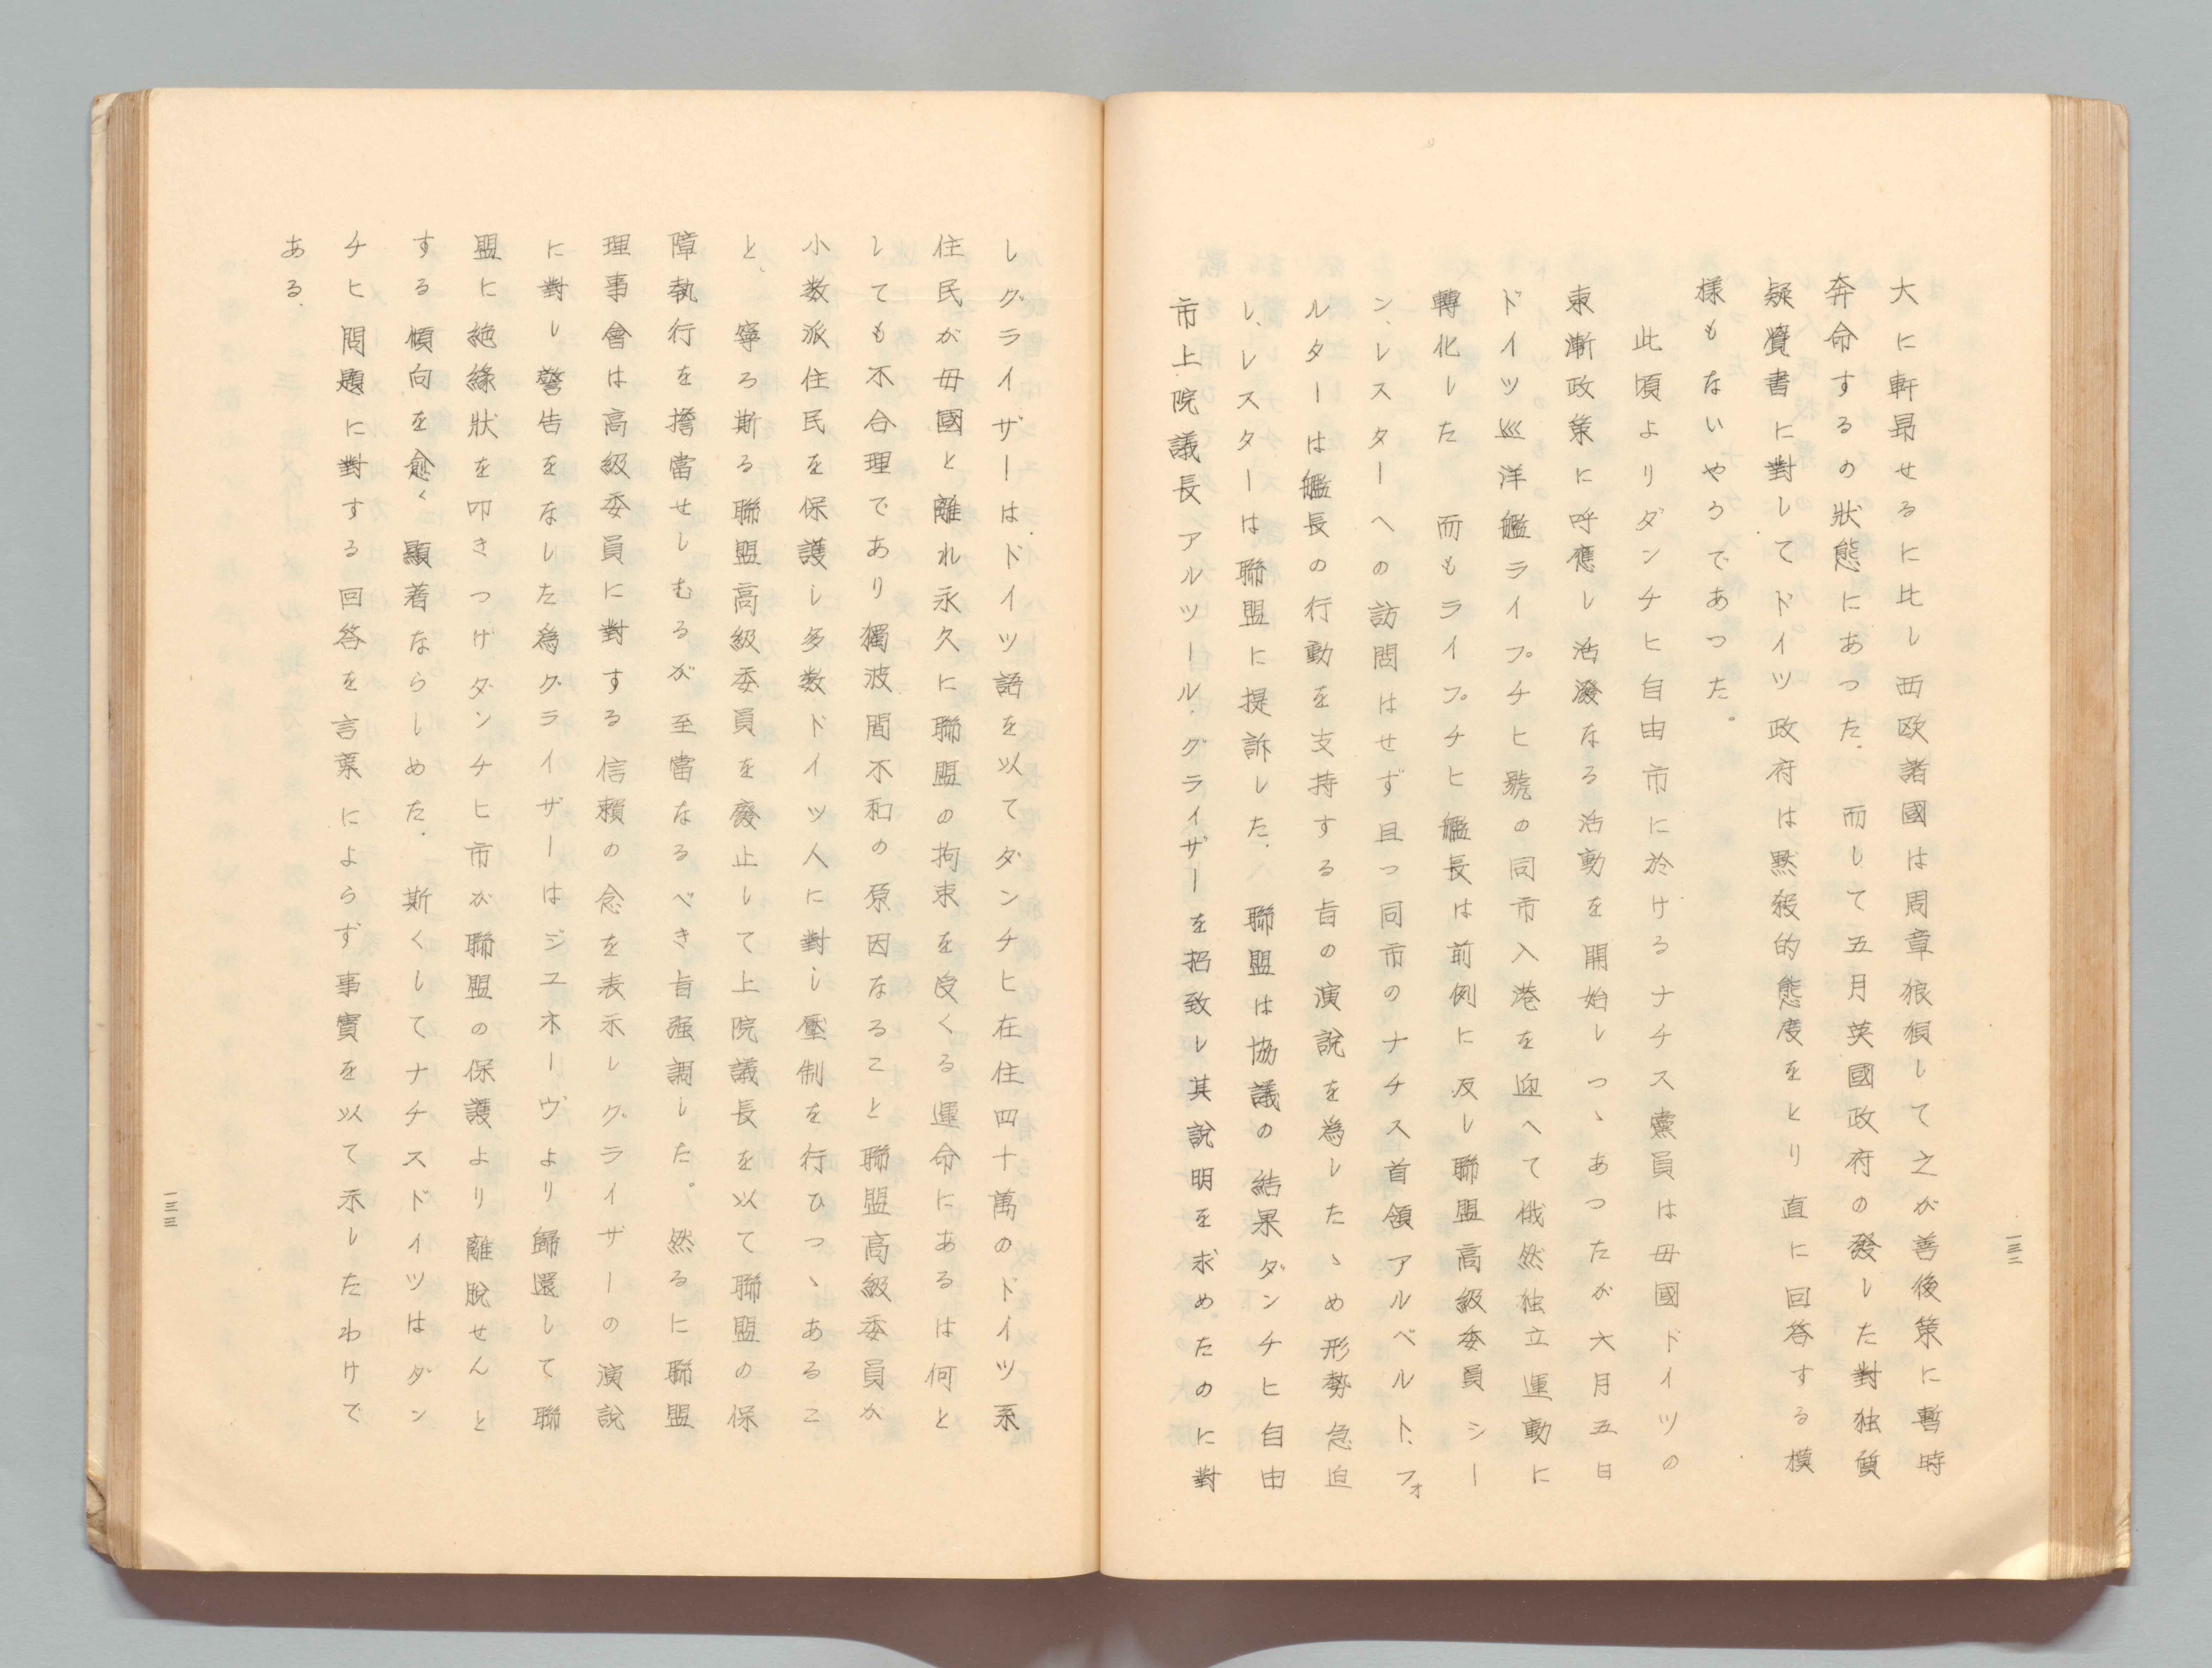 大に軒昻せるに比し西欧諸國は周章狼狽して之が善後策に暫時
奔命するの狀態にあつた．而して五月英國政府の發した對独質
疑書に對してドイツ政府は黙殺的態度をとり直に回答する模
様もないやうであつた。
此頃よりダンチヒ自由市に於けるナチス黨員は母國ドイツの
東漸政策に呼應し活潑なる活動を開始しつゝあつたが六月五日
ドイツ巡洋艦ライプチヒ號の同市入港を迎へて俄然独立運動に
轉化した　而もライプチヒ艦長は前例に反し聯盟高級委員シー
ン、レスターへの訪問はせず且つ同市のナチス首領アルベルト、フォ
ルターは艦長の行動を支持する旨の演說を為したゝめ形勢急迫
し、レスターは聯盟に提訴した．聯盟は協議の結果ダンチヒ自由
市上院議長アルツール．グライザーを招致し其說明を求めたのに對
一三二
しグライザーはドイツ語を以てダンチヒ在住四十萬のドイツ系
住民が母國と離れ永久に聯盟の拘束を受くる運命にあるは何と
しても不合理であり獨波間不和の原因なること聯盟高級委員が
小数派住民を保護し多数ドイツ人に對し壓制を行ひつゝあるこ
と、寧ろ斯る聯盟高級委員を廢止して上院議長を以て聯盟の保
障執行を擔當せしむるが至當なるべき旨强調した。然るに聯盟
理事會は高級委員に對する信賴の念を表示しグライザーの演說
に對し警告をなした為グライザーはジユネーヴより歸還して聯
盟に絶緣狀を叩きつけダンチヒ市が聯盟の保護より離脫せんと
する傾向を愈〻顯著ならしめた．斯くしてナチスドイツはダン
チヒ問題に對する回答を言葉によらず事實を以て示したわけで
ある．
一三三